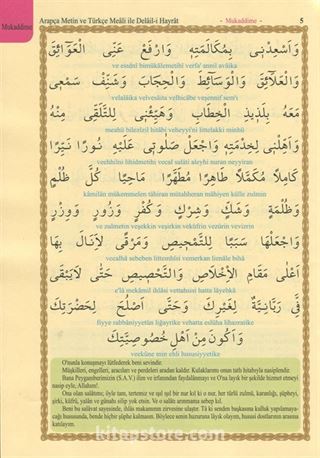 Mukaddime
Arapça Metin ve Türkçe Meâli ile Delâil-i Hayrât
- Mukaddime -
5
وَاَسْعِدْنٖى بِمُكَالَمَتِهٖ وَارْفَعْ عَنِّى الْعَوَٓائِقَ
ve esıdnî bimükâlemetihî verfa' annil avâika
وَالْعَلَٓائِقَ وَالْوَسَٓائِطَ وَالْحِجَابَ وَشَنِّفْ سَمْعٖى
velalâika velvesâita velhicâbe veşennif sem'i
مَعَهُ بِلَذٖيذِ الْخِطَابِ وَهَيِّئْنٖى لِلتَّلَقّٖى مِنْهُ
meahü bilezîzil hıtâbi veheyyi'ni littelakki minhü
وَاَهِّلْنٖى لِخِدْمَتِهٖ وَاجْعَلْ صَلٰوتٖى عَلَيْهِ نُورًا نَيِّرًا
vechhilni lihıdmetihi vecal salâti aleyhi nuran neyyiran
كَامِلًا مُكَمَّلًا طَاهِرًا مُطَهَّرًا مَاحِيًا كُلَّ ظُلْمٍ
kâmilân mükemmelen tâhiran mütahheran mâhiyen külle zulmin
وَظُلْمَةٍ وَشَكٍّ وَشِرْكٍ وَكُفْرٍ وَزُورٍ وَوِزْرٍ
ve zulmetin veşekkin veşirkin veküfrin vezûrin vevizrin
وَاجْعَلْهَا سَبَبًا لِلتَّمْحٖيصِ وَمَرْقًى لِاَنَالَ بِهَا
vecalhâ sebeben littemhîsi vemerkan lienâle bihâ
اَعْلٰى مَقَامِ الْاِخْلَاصِ وَالتَّخْصٖيصِ حَتّٰى لَا يَبْقٰى
e'lâ mekâmil ihlâsi vettahsisi hatta lâyebkâ
فِىَّ رَبَّانِيَّةٌ لِغَيْرِكَ وَحَتّٰى اَصْلُحَ لِحَضْرَتِكَ
fiyye rabbâniyyetün liğayrike vehatta eslüha lihazratike
وَاَكُونَ مِنْ اَهْلِ خُصُوصِيَّتِكَ
veekûne min ehli hususiyyetike
O'nunla konuşmayı lütfederek beni sevindir.
Müşkilleri, engelleri, aracıları ve perdeleri aradan kaldır. Kulaklarımı onun tatlı hitabıyla nasiplendir.
Bana Peygamberimizin (S.A.V.) ilim ve irfanından faydalanmayı ve O'na layık bir şekilde hizmet etmeyi nasip eyle, Allahım!.
Ona olan salâtımı; öyle tam, tertemiz ve ışıl ışıl bir nur kıl ki o nur, her türlü zulmü, karanlığı, şüpheyi, şirki, küfrü, yalân ve günahı silip yok etsin. Ve o salâtı arınmama sebep kıl.
Beni bu salâvat sayesinde, ihlâs makamının zirvesine ulaştır. Tâ ki senden başkasına kulluk yapılamayacağı hususunda, bende hiçbir şüphe kalmasın. Böylece senin huzuruna lâyık olayım, hususi dostlarının arasına katılayım.
kitapstore.com